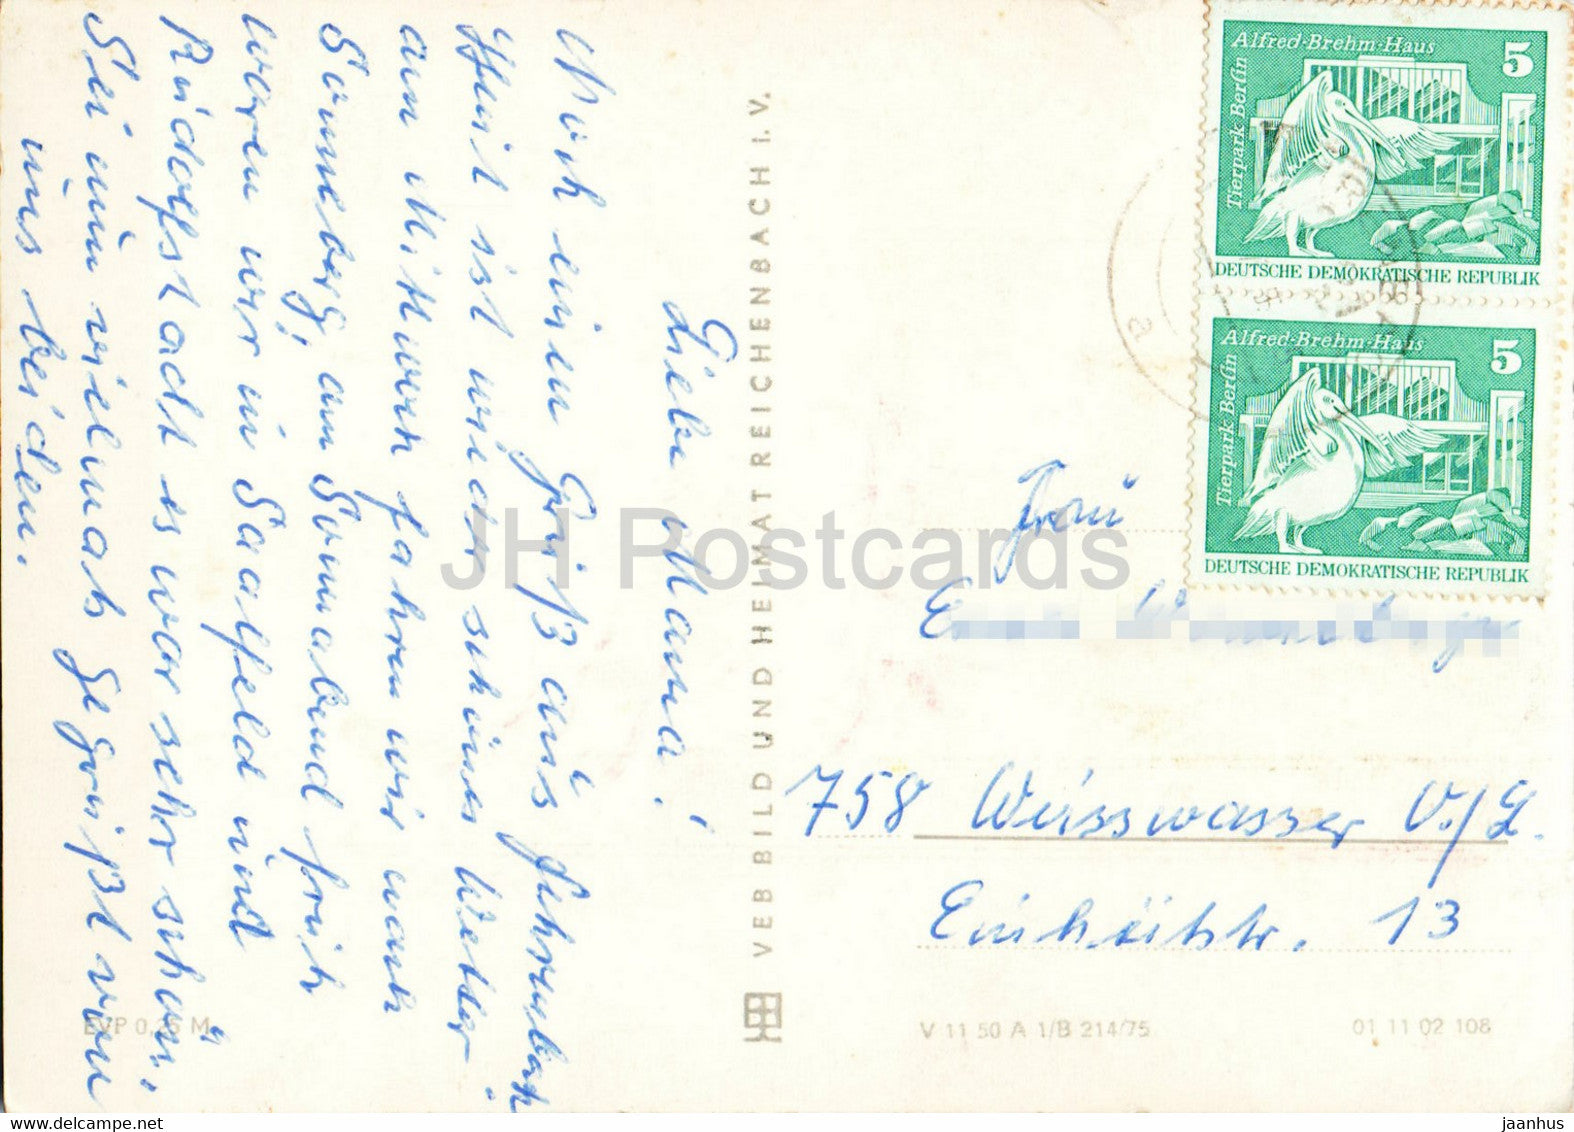 Liebe Mama!
Noch einen Gruß aus Fehrenbach
Heut ist wieder schönes Wetter.
am Mittwoch fahren wir nach
Sonneberg, am Sonnabend früh
waren wir in Saalfeld und
Rudolfstadt es war sehr schön,
Sei nun vielmals gegrüßt von
uns beiden.
EVP 0,25 M
VEB BILD UND HEIMAT REICHENBACH I. V.
Alfred-Brehm-Haus
5
Tierpark Berlin
DEUTSCHE DEMOKRATISCHE REPUBLIK
Alfred-Brehm-Haus
5
Tierpark Berlin
DEUTSCHE DEMOKRATISCHE REPUBLIK
a
Frau
758 Weisswasser O./L.
Einheitstr. 13
V 11 50 A 1/B 214/75
01 11 02 108
JH Postcards
www.delcampe.net
jaanhus